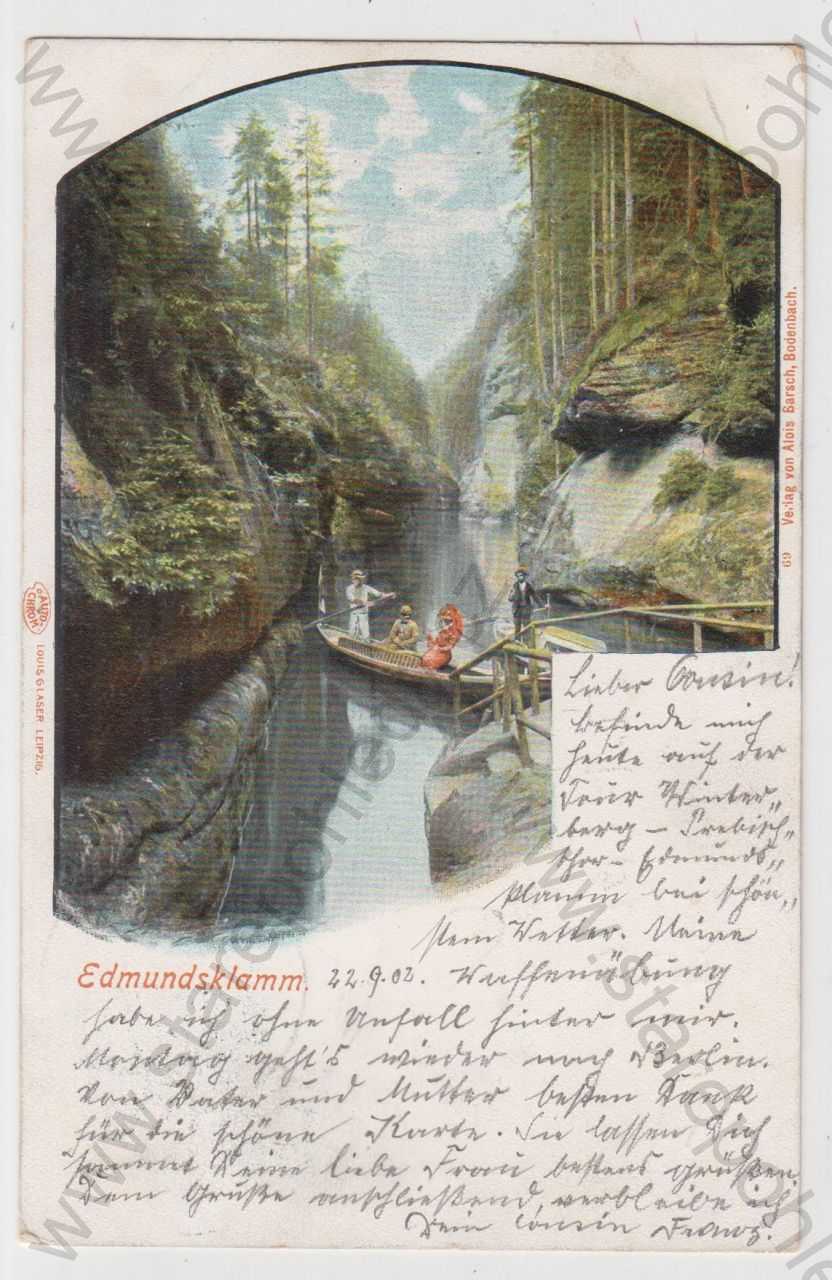 Lieber Cousin!
befinde mich
heute auf der
Tour Winter„
berg – Prebisch„
thor – Edmunds„
klamm bei schön„
stem Wetter. Meine
Edmundsklamm. 22.9.02. Waffenübung
habe ich ohne Unfall hinter mir.
Montag geht's wieder nach Berlin.
Von Vater und Mutter besten Dank
für die schöne Karte. Sie lassen Dich
sammt Deine liebe Frau bestens grüßen.
Dem Gruße anschließend, verbleibe ich
Dein Cousin Franz.
69 Verlag von Alois Barsch, Bodenbach.
AUTO CHROM
LOUIS GLASER LEIPZIG.
www.starepohledy